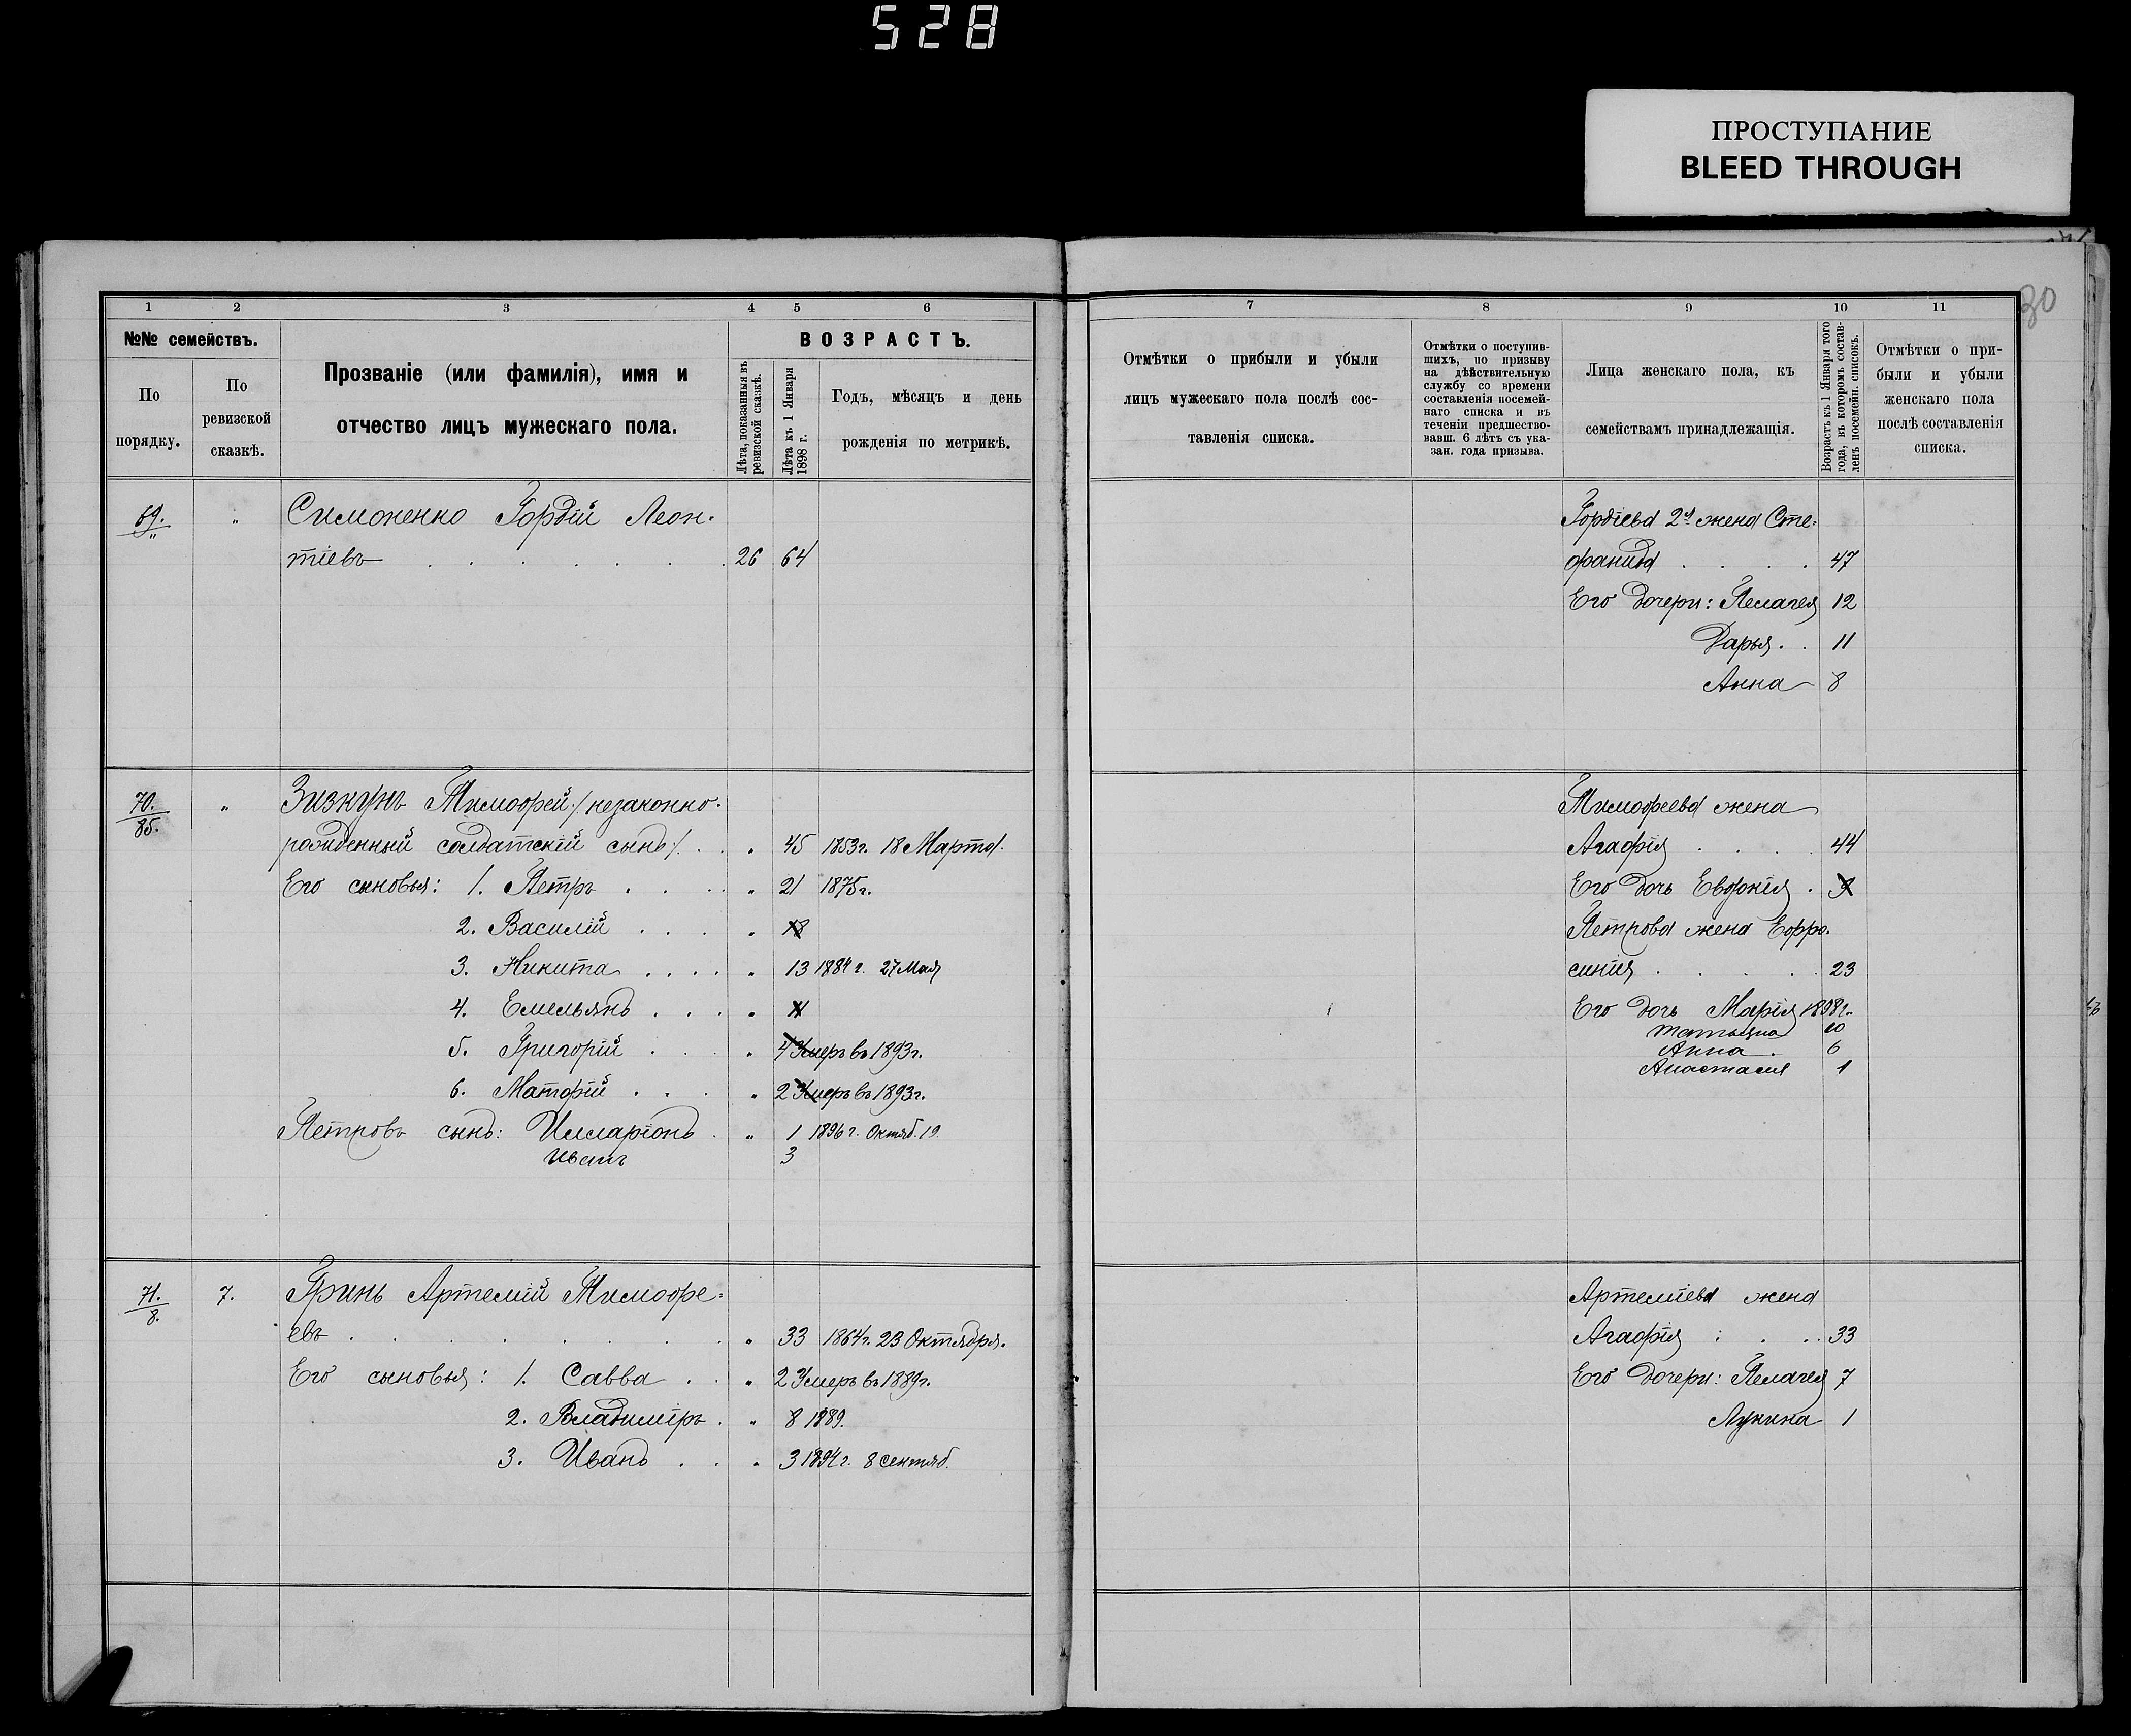 528
ПРОСТУПАНИЕ
BLEED THROUGH
30
1 2 3 4 5 6
№№ семействъ.
По порядку.
По ревизской сказкѣ.
Прозваніе (или фамилія), имя и
отчество лицъ мужескаго пола.
ВОЗРАСТЪ.
Лѣта, показанныя въ
ревизской сказкѣ.
Лѣта къ 1 Января
1898 г.
Годъ, мѣсяцъ и день
рожденія по метрикѣ.
69. " Симоненко Гордій Леон-
" тіевъ 26 64
70. " Зизкунъ Тимофей /незаконно-
85. рожденный солдатскій сынъ/. " 45 1853г. 18 Марта.
Его сыновья: 1. Петръ " 21 1875г.
2. Василій " 18
3. Никита " 13 1884 г. 27 Мая
4. Емельянъ " 11
5. Григорій " 4 Умеръ въ 1893г.
6. Матфій " 2 Умеръ въ 1893г.
Петровъ сынъ: Илларіонъ " 1 1896 г. Октяб. 19.
Иванъ 3
71. 7. Гринь Артемій Тимофе-
8. евъ " 33 1864г. 23 Октября.
Его сыновья: 1. Савва " 2 Умеръ въ 1889г.
2. Владиміръ " 8 1889.
3. Иванъ " 3 1894г. 8 Сентяб.
7 8 9 10 11
Отмѣтки о прибыли и убыли
лицъ мужескаго пола послѣ сос-
тавленія списка.
Отмѣтки о поступив-
шихъ, по призыву
на дѣйствительную
службу со времени
составленія посемей-
наго списка и въ
теченіи предшество-
вавш. 6 лѣтъ съ ука-
зан. года призыва.
Лица женскаго пола, къ
семействамъ принадлежащія.
Возрастъ къ 1 Января того
года, въ которомъ состав-
ленъ посемейн. списокъ.
Отмѣтки о при-
были и убыли
женскаго пола
послѣ составленія
списка.
Гордіева 2я жена Сте-
фанида 47
Его дочери: Пелагея 12
Дарья 11
Анна 8
Тимофеева жена
Агафія 44
Его дочь Евфимія 9
Петрова жена Ефро-
синія 23
Его дочь Марія 1898г.
Татьяна 10
Анна 6
Анастасия 1
Артеміева жена
Агафія 33
Его дочери: Пелагея 7
Лукина 1